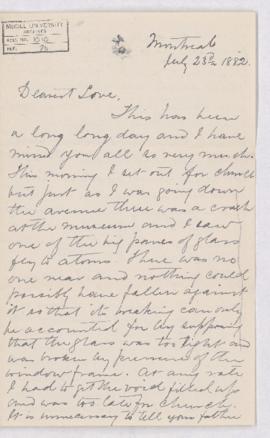 McGILL UNIVERSITY
ARCHIVES
ACC. NO.
REF.
Montreal
July 23rd, 1882.
Dearest Love,
This has been
a long long day and I have
missed you all so very much.
This morning I set out for church
but just as I was going down
the avenue there was a crash
at the museum and I saw
one of the big panes of glass
fly to atoms. There was no
one near and nothing could
possibly have fallen against
it so that its breaking can only
be accounted for by supposing
that the glass was too tight and
was broken by pressure of the
window frame. At any rate
I had to get the void filled up
and was too late for church.
It is unnecessary to tell your father